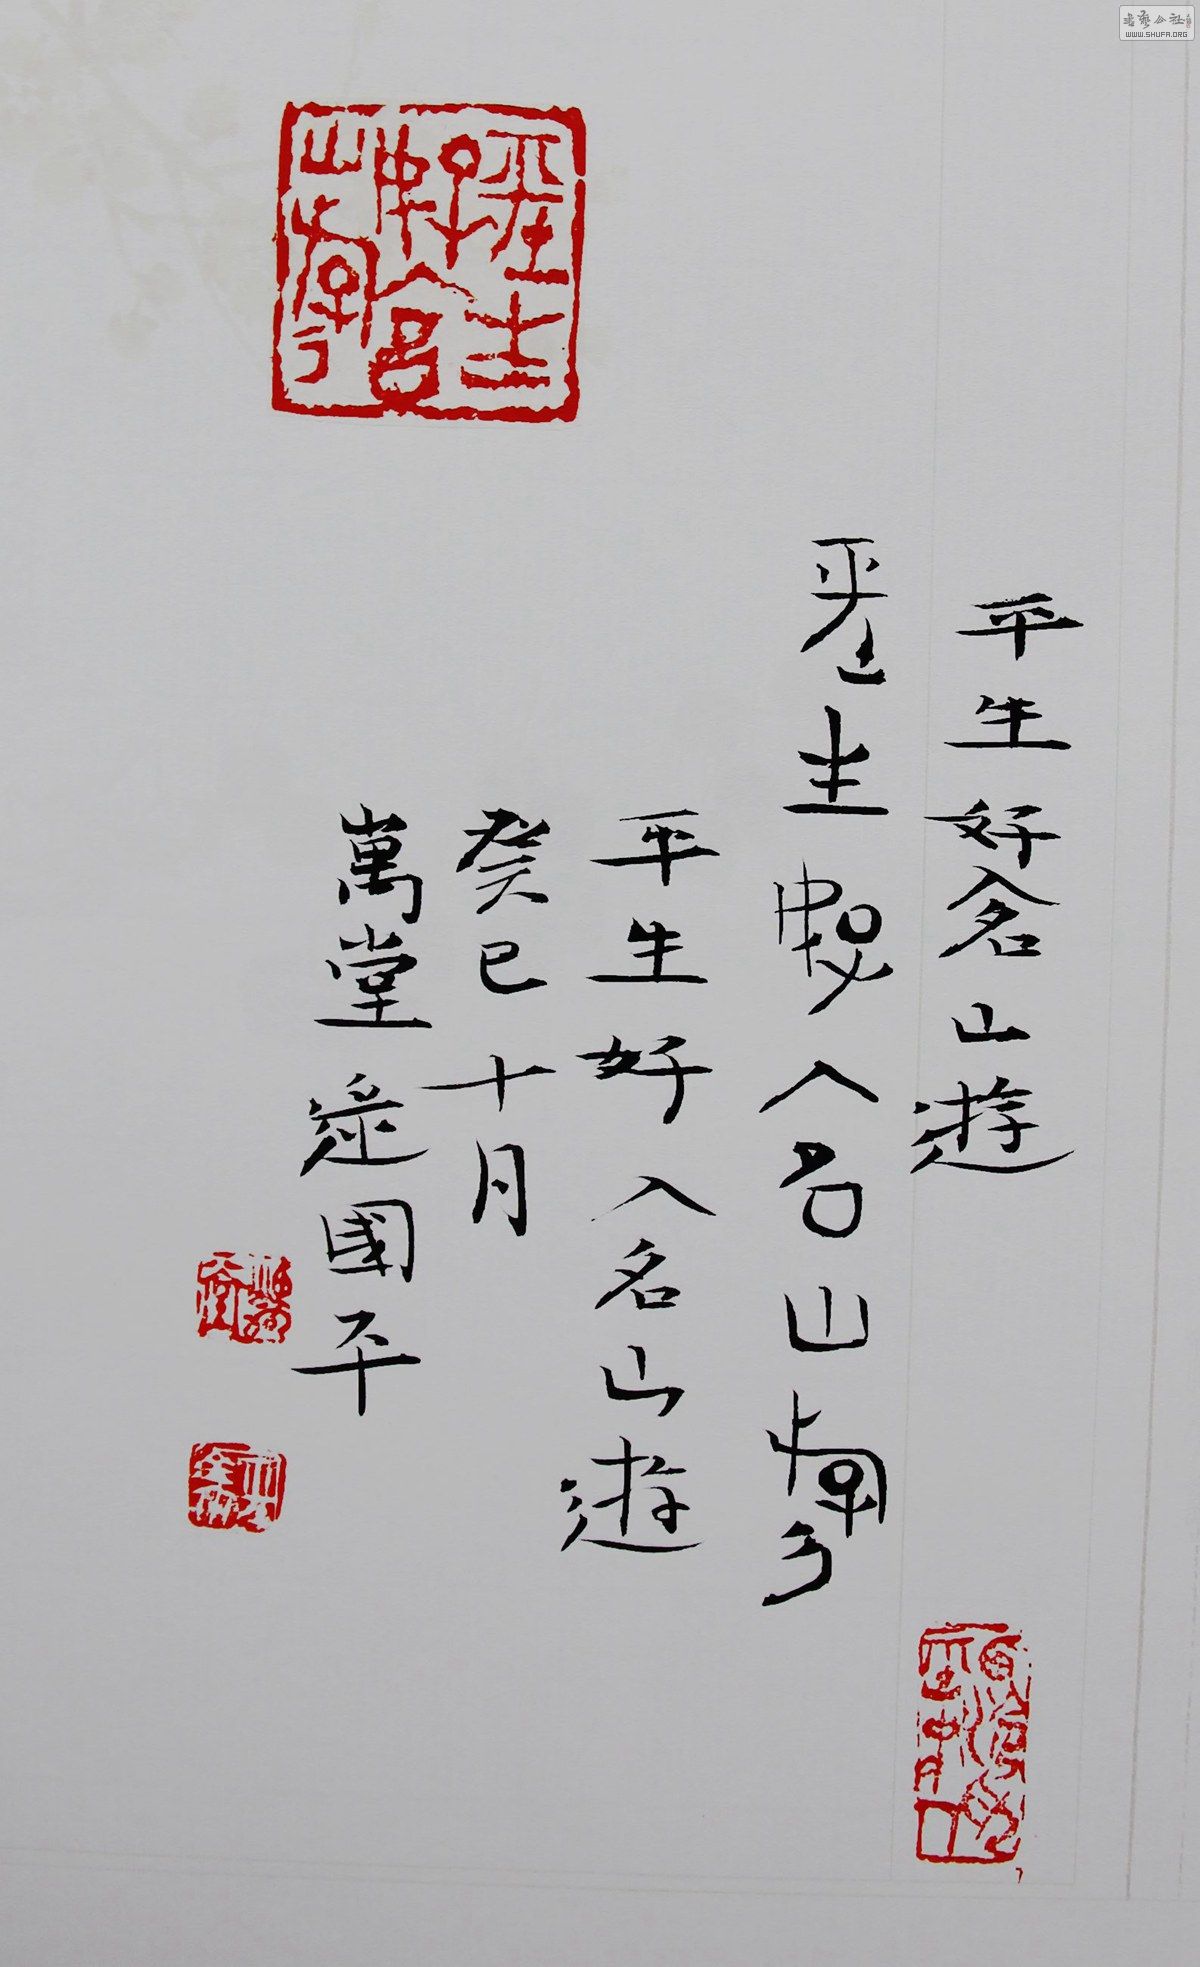 平生好入名山遊
平生好入名山遊
平生好入名山遊
癸巳十月
萬堂逯國平
平生好入名山遊
書藝公社
WWW.SHUFA.ORG